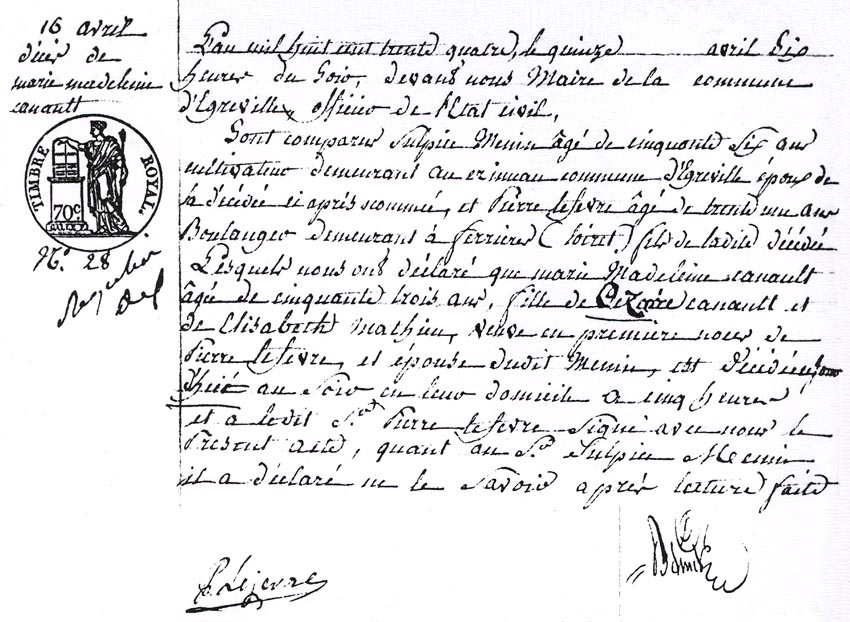 16 avril
décès de
marie madeleine
canault
TIMBRE ROYAL.
70c
N.° 28
L'an mil huit cent trente quatre, le quinze avril Six
heures du Soir, devant nous Maire de la commune
d'Egreville, officier de l'Etat civil,
Sont comparus Sulpice Menin âgé de cinquante Six ans
cultivateur demeurant au commune d'Egreville époux de
la décédée ci après nommée, et Pierre lefevre âgé de trente un ans
Boulanger demeurant à ferrières (Loiret) fils de ladite décédée
Lesquels nous ont déclaré que marie Madeleine canault
âgée de cinquante trois ans, fille de Cezaire canault et
de Elisabeth Mathieu, veuve en première noces de
Pierre lefevre, et épouse dudit Menin, est décédée
hier au Soir en leur domicile a cinq heures
et a ledit S. Pierre lefevre Signé avec nous le
Présent acte, quant au S. Sulpice Menin
il a déclaré ne le Savoir après lecture faite
P. Lefevre